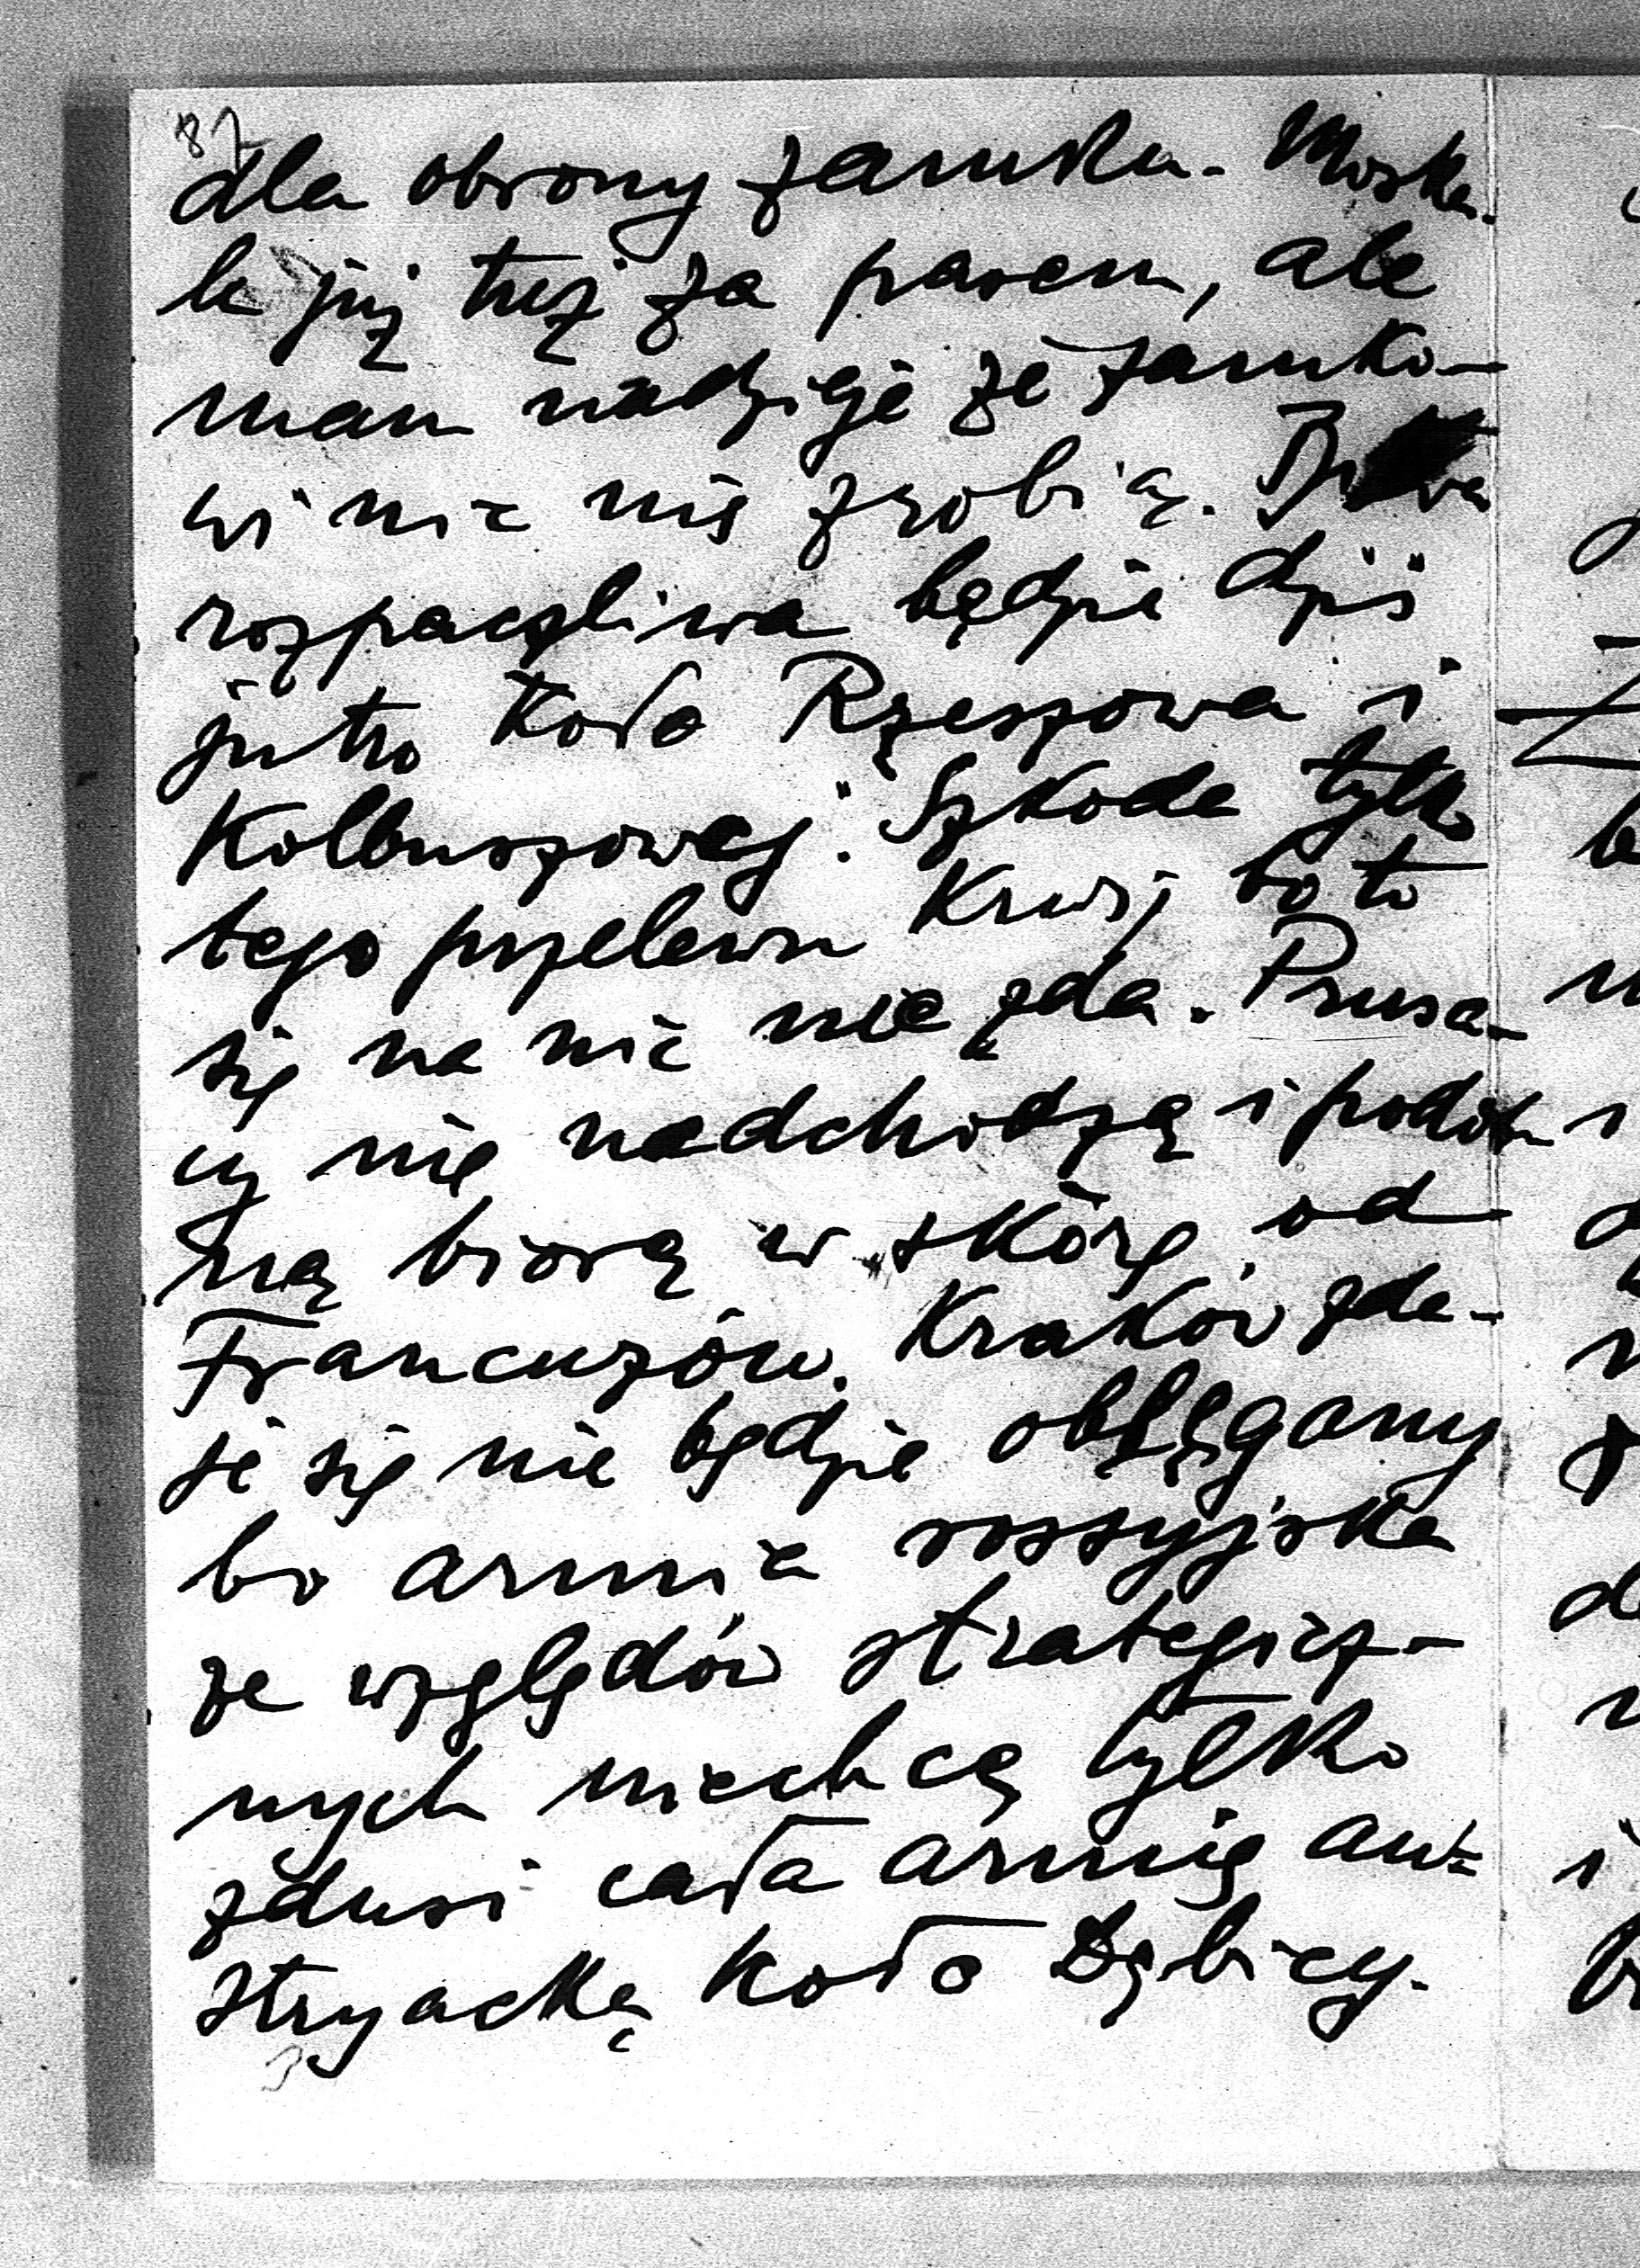 87
dla obrony zamku. Moska-
le już tuż za pasem, ale
mam nadzieję że zamko-
wi nic nie zrobią. Bitwa
rozpaczliwa będzie dziś
jutro koło Rzeszowa i
Kolbuszowej. Szkoda tylko
tego przelewu krwi, bo to
się na nic nie zda. Prusa-
cy nie nadchodzą i podob-
no biorą w skórę od
Francuzów. Kraków zda-
je się nie będzie oblęgany
bo armia rossyjska
ze względów strategicz-
nych niechcą tylko
zdusi całą armię au-
stryacką koło Dębicy.
3